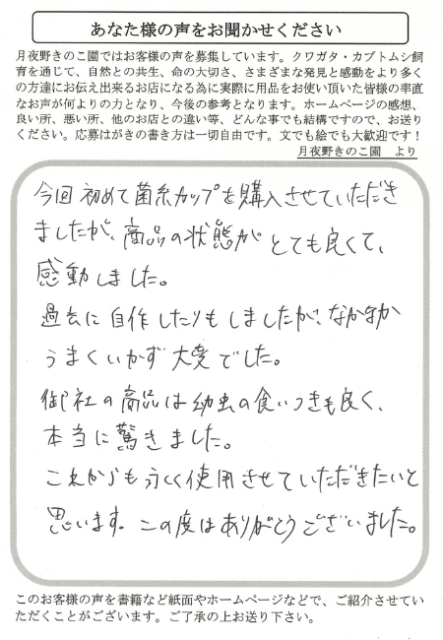 あなた様の声をお聞かせください
月夜野きのこ園ではお客様の声を募集しています。クワガタ・カブトムシ飼
育を通じて、自然との共生、命の大切さ、さまざまな発見と感動をより多く
の方達にお伝え出来るお店になる為に実際に用品をお使い頂いた皆様の率直
なお声が何よりの力となり、今後の参考となります。ホームページの感想、
良い所、悪い所、他のお店との違い等、どんな事でも結構ですので、お送り
ください。応募はがきの書き方は一切自由です。文でも絵でも大歓迎です！
月夜野きのこ園 より
今回初めて菌糸カップを購入させていただき
ましたが、商品の状態がとても良くて、
感動しました。
過去に自作したりもしましたが、なかなか
うまくいかず大変でした。
御社の商品は幼虫の食いつきも良く、
本当に驚きました。
これからも永く使用させていただきたいと
思います。この度はありがとうございました。
このお客様の声を書籍など紙面やホームページなどで、ご紹介させてい
ただくことがございます。ご了承の上お送り下さい。